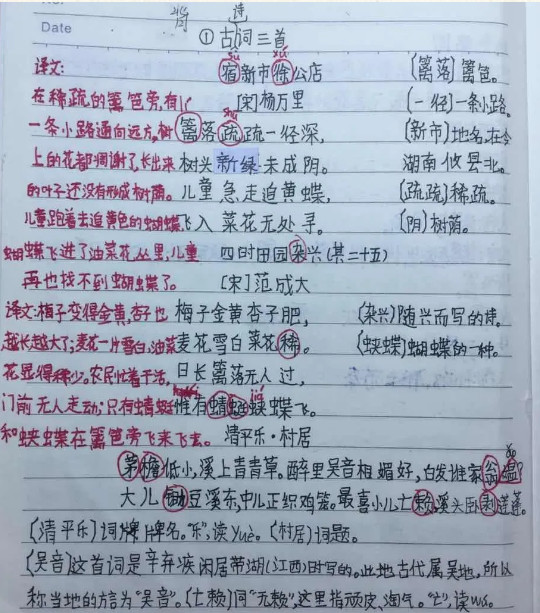 Date
诗
①古词三首
译文:
sù xú
宿新市徐公店
(篱落)篱笆。
在稀疏的篱笆旁,有
[宋]杨万里
(一径)一条小路。
一条小路通向远方,树
shū
篱落疏疏一径深,
(新市)地名,在今
上的花都凋谢了,长出来
树头新绿未成阴。
湖南攸县北。
的叶子还没有形成树荫。
儿童急走追黄蝶,
(疏疏)稀疏。
儿童跑着去追黄色的蝴蝶
飞入菜花无处寻。
(阴)树荫。
蝴蝶飞进了油菜花丛里,儿童
四时田园杂兴(其二十五)
再也找不到蝴蝶了。
[宋]范成大
译文:梅子变得金黄,杏子也
梅子金黄杏子肥,
(杂兴)随兴而写的诗。
越长越大了;麦花一片雪白,油菜
麦花雪白菜花稀。
(蛱蝶)蝴蝶的一种。
花显得稀少。农民忙着干活,
日长篱落无人过,
门前无人走动;只有蜻蜓
惟有蜻蜓蛱蝶飞。
jiá
和蛱蝶在篱笆旁飞来飞去。
清平乐·村居
茅檐低小,溪上青青草。醉里吴音相媚好,白发谁家翁媪?
大儿锄豆溪东,中儿正织鸡笼。最喜小儿亡赖,溪头卧剥莲蓬。
(清平乐)词牌牌名。"乐",读yuè。(村居)词题。
(吴音)这首词是辛弃疾闲居带湖(江西)时写的。此地古代属吴地,所以
称当地的方言为"吴音"。(亡赖)同"无赖",这里指顽皮、淘气。"亡",读wú。